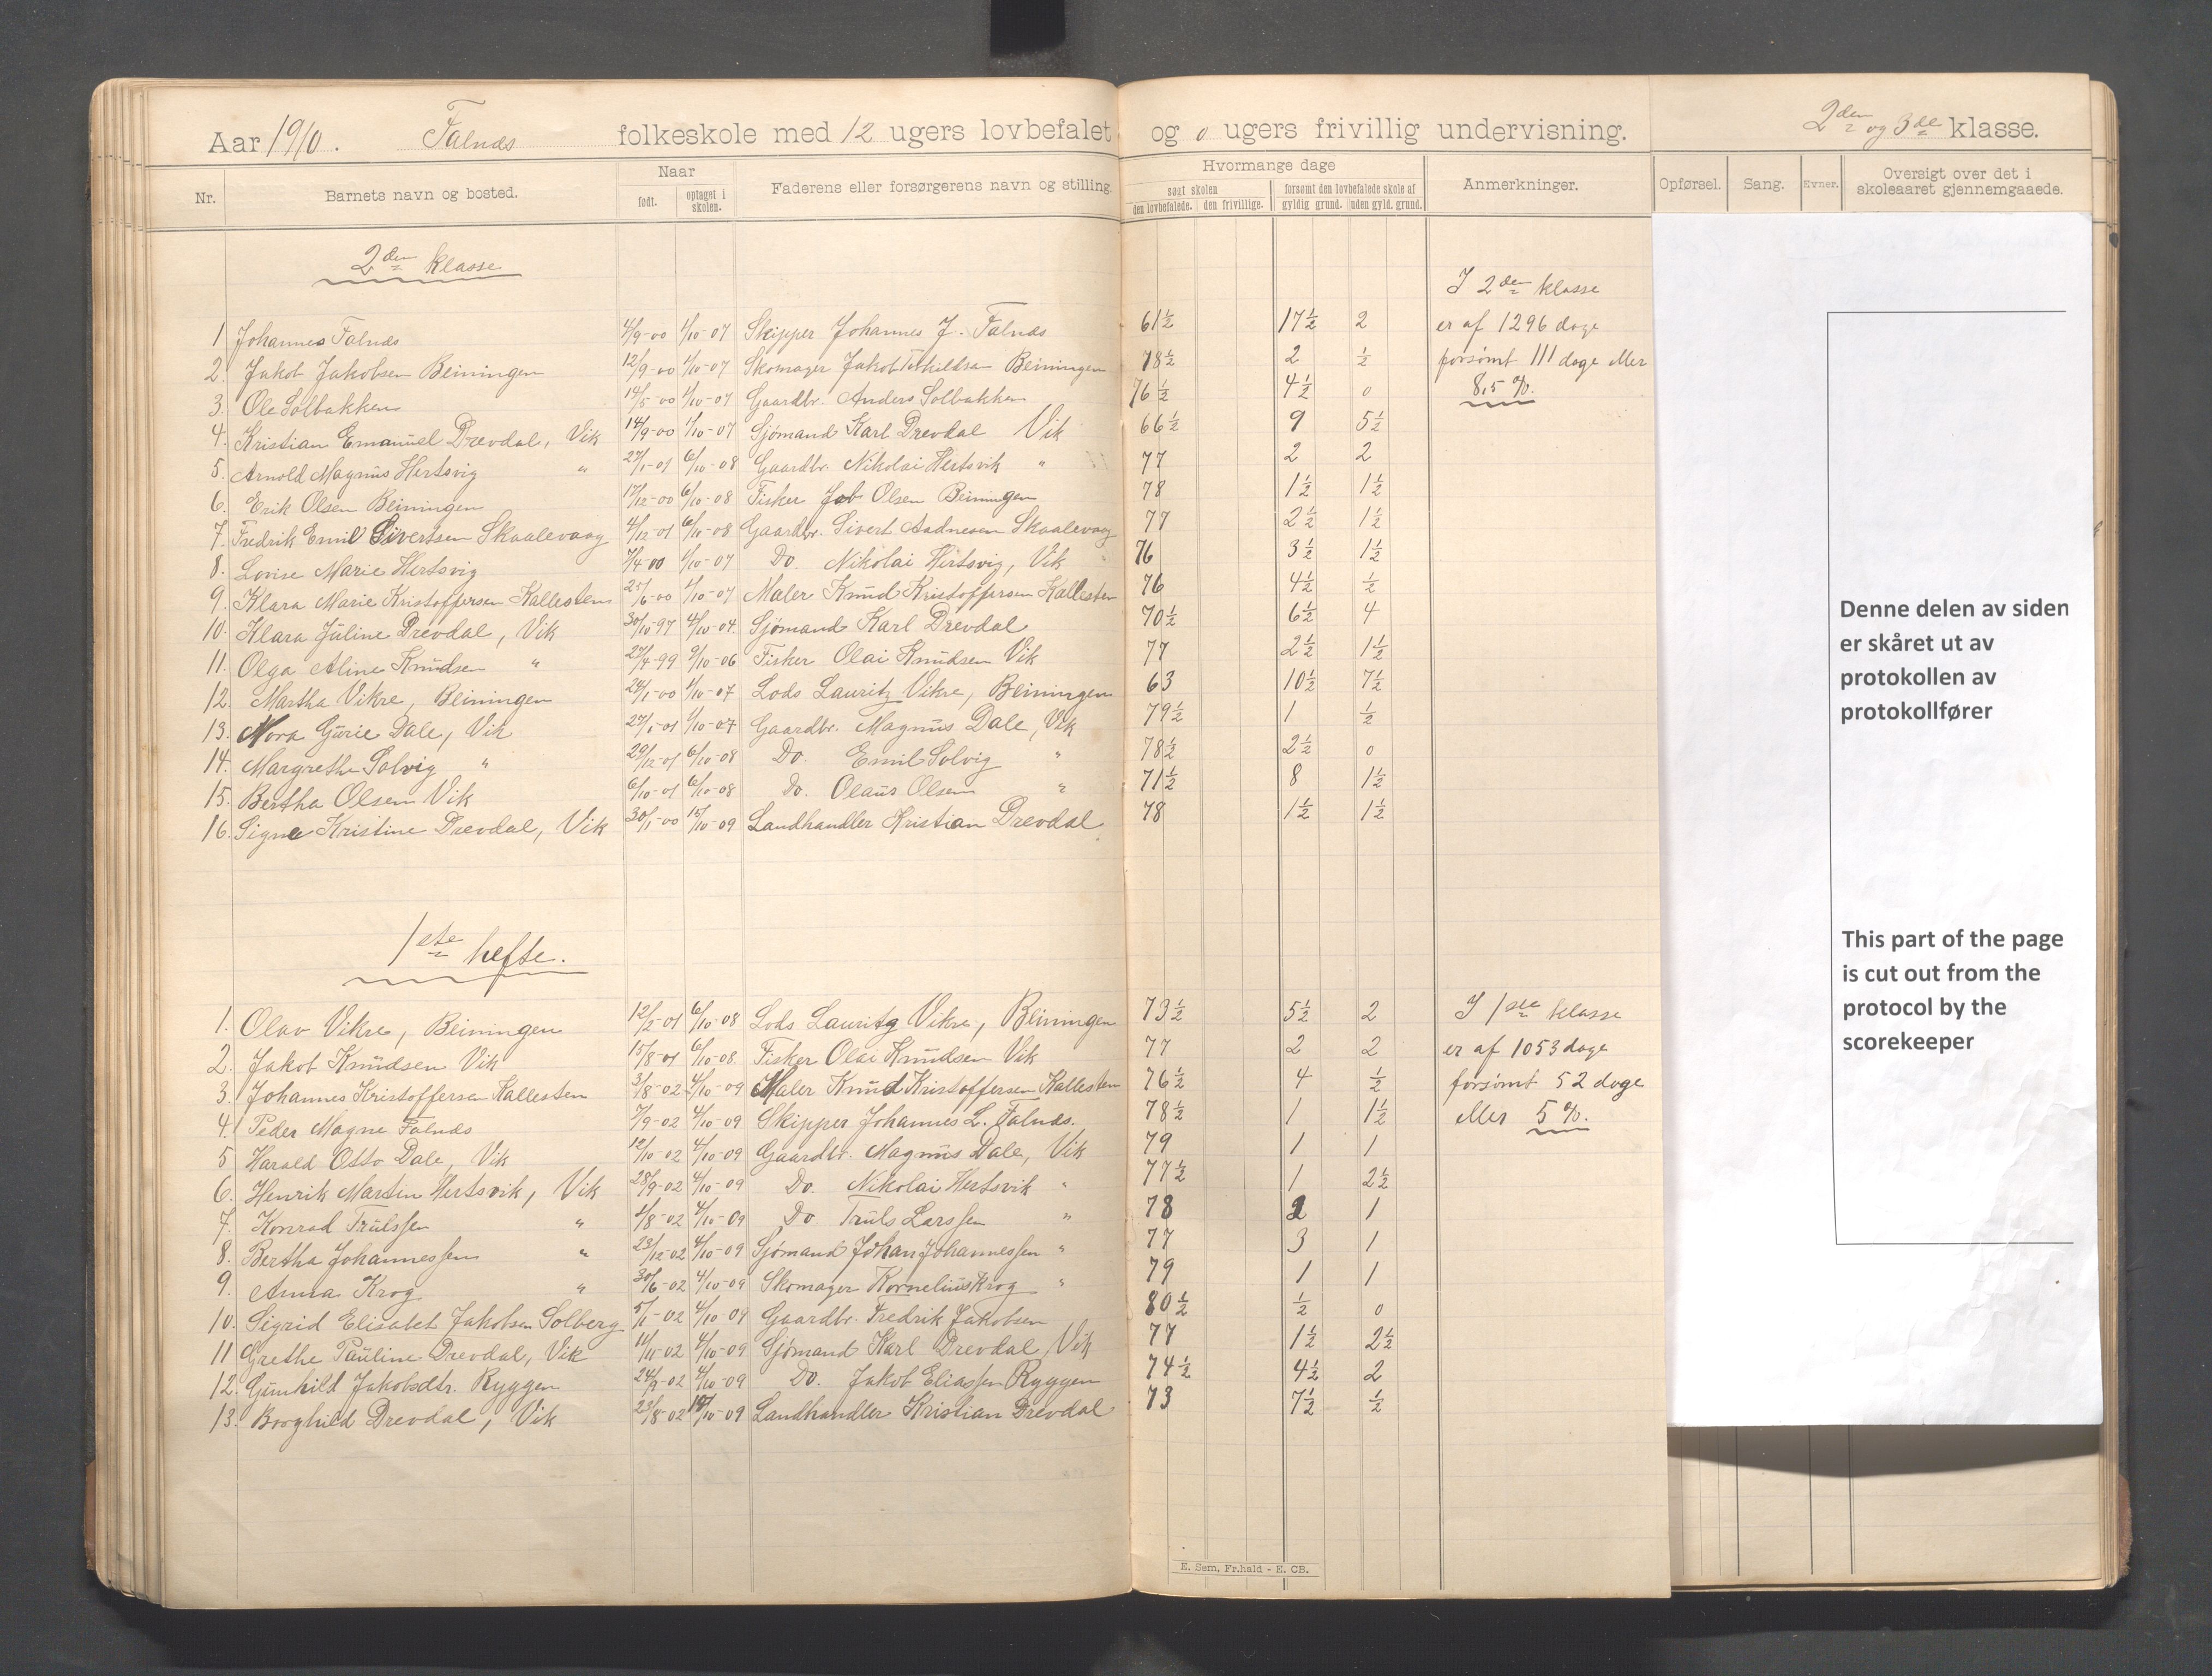 Aar 1910. Falnds folkeskole med 12 ugers lovbefalet og 0 ugers frivillig undervisning. 2den og 3de klasse.
Nr. Barnets navn og bosted. Naar født. optaget i skolen. Faderens eller forsørgerens navn og stilling. Hvormange dage søgt skolen den lovbefalede. den frivillige. forsømt den lovbefalede skole af gyldig grund. uden gyld. grund. Anmerkninger. Opførsel. Sang. Evner. Oversigt over det i skoleaaret gjennemgaaede.
2den klasse
I 2den klasse
1 Johannes Falnds 4/9-00 1/10-07 Skipper Johannes J. Falnds 61½ 17½ 2 er af 1296 dage
2. Jakob Jakobsen Beiningen 12/9-00 1/10-07 Skomager Jakob Beiningen 78½ 2 ½ forsømt 111 dage eller
3. Ole Solbakken 14/5-00 1/10-07 Gaardbr. Anders Solbakken 76½ 4½ 0 8,5 %.
4. Kristian Emanuel Drevdal, Vik 14/9-00 1/10-07 Sjømand Karl Drevdal Vik 66½ 9 5½
5. Arnold Magnus Hertsvig " 27/1-01 6/10-08 Gaardbr. Nikolai Hertsvik " 77 2 2
6. Erik Olsen Beiningen 17/12-00 6/10-08 Fisker Job Olsen Beiningen 78 1½ 1½
7. Fredrik Emil Sivertsen Skaalevaag 4/12-01 6/10-08 Gaardbr. Sivert Aadnesen Skaalevaag 77 2½ 1½
8. Lovise Marie Hertsvig 7/4-00 1/10-07 Do. Nikolai Hertsvig, Vik 76 3½ 1½
9. Klara Marie Kristoffersen Kallesten 25/6-00 1/10-07 Maler Knud Kristoffersen Kallesten 76 4½ ½
10. Klara Juline Drevdal, Vik 30/10-97 4/10-04. Sjømand Karl Drevdal 70½ 6½ 4
11. Olga Aline Knudsen " 27/4-99 9/10-06 Fisker Olai Knudsen Vik 77 2½ 1½
12. Martha Vikre, Beiningen 24/1-00 1/10-07 Lods Lauritz Vikre, Beiningen 63 10½ 7½
13. Nora Gurie Dale, Vik 27/1-01 1/10-07 Gaardbr. Magnus Dale, Vik 79½ 1 ½
14. Margrethe Solvig " 29/12-01 6/10-08 Do. Emil Solvig " 78½ 2½ 0
15. Bertha Olsen Vik 6/10-01 6/10-08 Do. Olaus Olsen " 71½ 8 1½
16. Signe Kristine Drevdal, Vik 30/1-00 15/10-09 Landhandler Kristian Drevdal 78 1½ 1½
1ste hefte.
1. Olav Vikre, Beiningen 12/2-01 6/10-08 Lods Lauritz Vikre, Beiningen 73½ 5½ 2 I 1ste klasse
2. Jakob Knudsen Vik 15/8-01 6/10-08. Fisker Olai Knudsen Vik 77 2 2 er af 1053 dage
3. Johannes Kristoffersen Kallesten 3/8-02 4/10-09 Maler Knud Kristoffersen Kallesten 76½ 4 ½ forsømt 52 dage
4. Peder Magne Falnds 7/9-02 4/10-09 Skipper Johannes L. Falnds. 78½ 1 1½ eller 5 %.
5 Harald Otto Dale, Vik 12/10-02 4/10-09 Gaardbr. Magnus Dale, Vik 79 1 1
6. Henrik Martin Hertsvik, Vik 28/9-02 4/10-09 Do. Nikolai Hertsvik " 77½ 1 2½
7. Konrad Trulssen " 4/8-02 4/10-09 Do Truls Larssen " 78 2 1
8. Bertha Johannessen " 23/12-02 4/10-09 Sjømand Johan Johannessen " 77 3 1
9. Anna Krog " 30/6-02 4/10-09 Skomager Kornelius Krog " 79 1 1
10. Sigrid Elisabet Jakobsen Solberg 5/1-02 4/10-09 Gaardbr. Fredrik Jakobsen 80½ ½ 0
11 Grethe Pauline Drevdal, Vik 11/10-02 4/10-09 Sjømand Karl Drevdal, Vik 77 1½ 2½
12. Gunhild Jakobsdtr. Ryggen 24/9-02 4/10-09 Do. Jakob Eliassen Ryggen 74½ 4½ 2
13. Borghild Drevdal, Vik 23/8-02 /10-09 Landhandler Kristian Drevdal 73 7½ ½
E. Sem, Fr.hald - E. CB.
Denne delen av siden
er skåret ut av
protokollen av
protokollfører
This part of the page
is cut out from the
protocol by the
scorekeeper